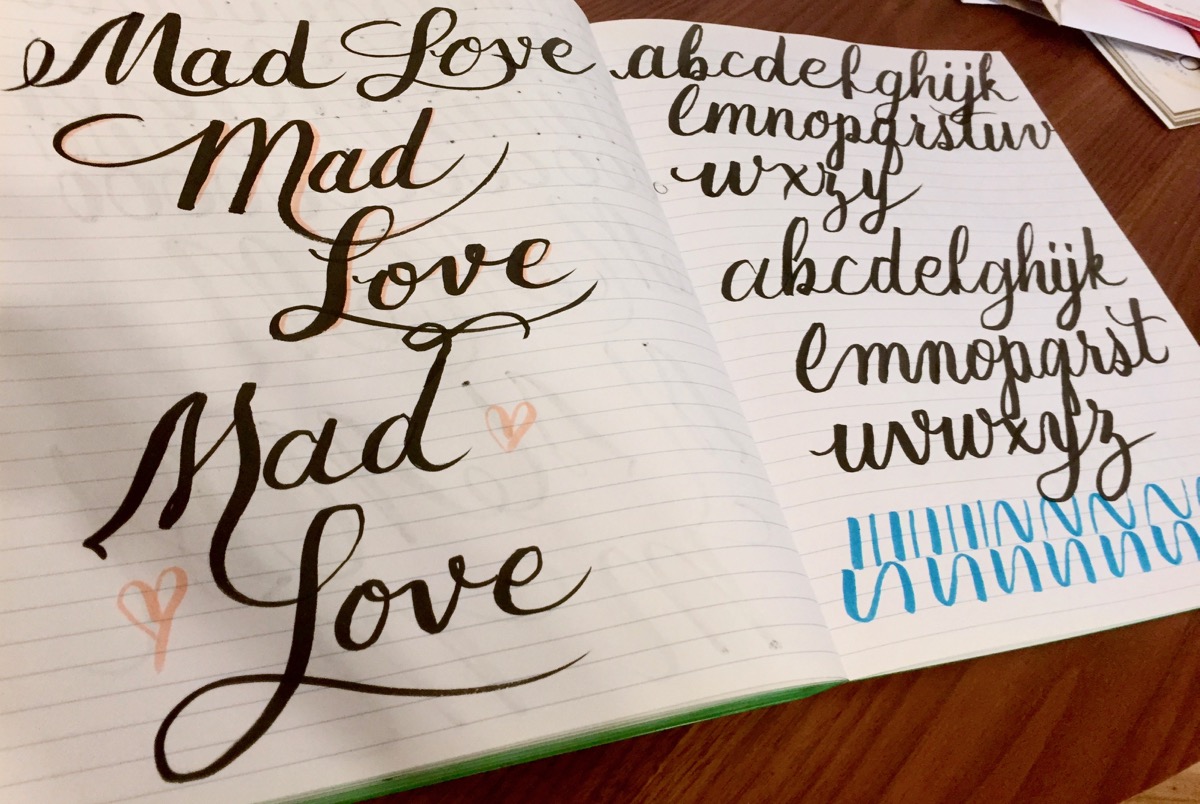 Mad Love
Mad
Love
Mad
Love
abcdefghijk
lmnopqrstuv
wxzy
abcdefghijk
lmnopqrst
uvwxyz